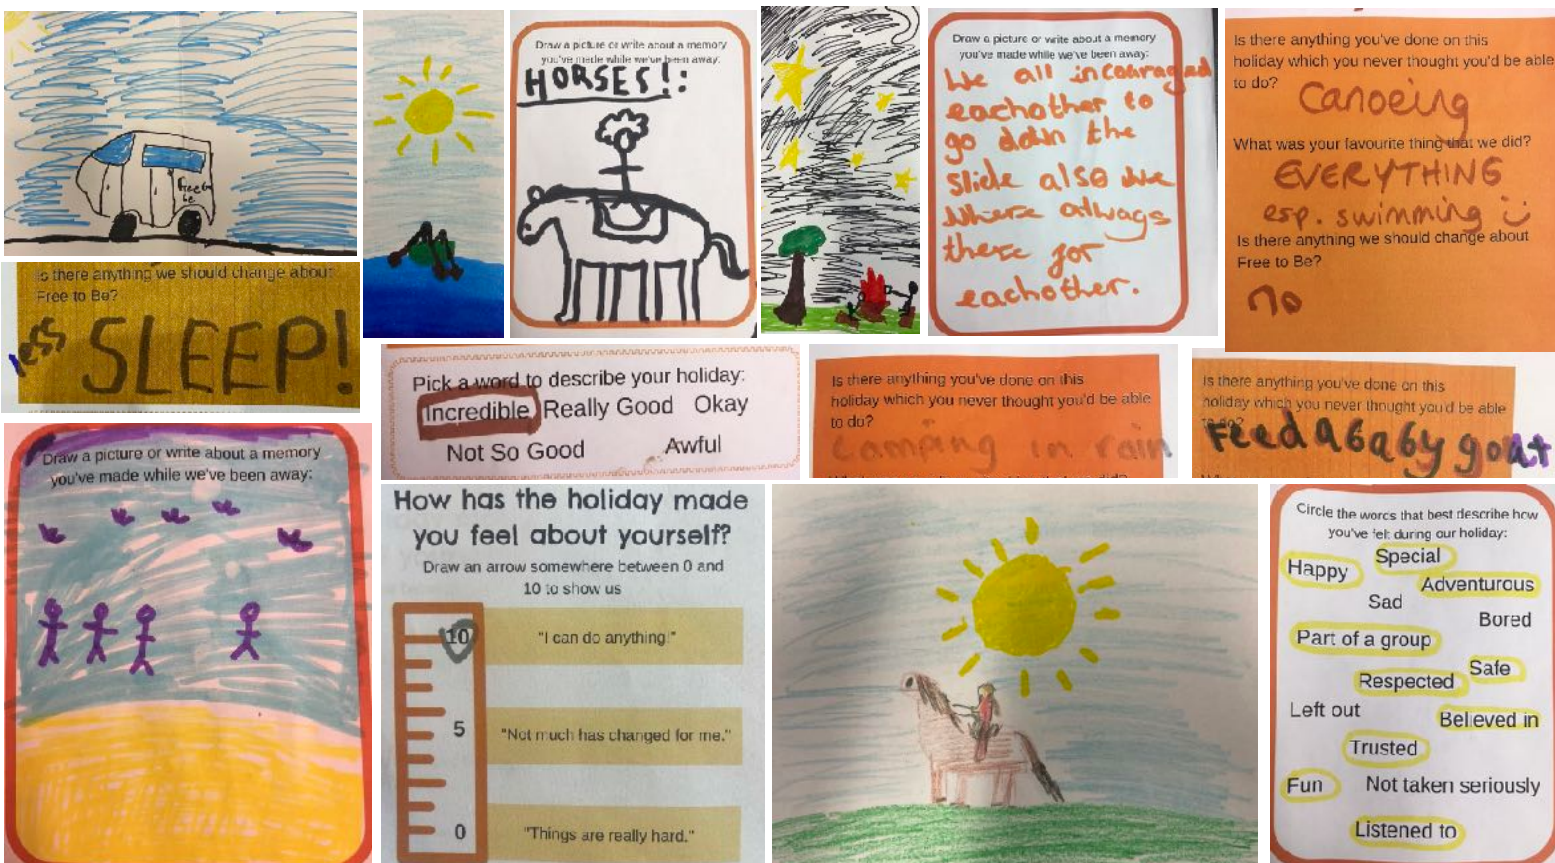 Free to
be
Draw a picture or write about a memory
you've made while we've been away:
HORSES!:
Draw a picture or write about a memory
you've made while we've been away:
We all incouraged
eachother to
go down the
slide also we
where always
there for
eachother.
Is there anything you've done on this
holiday which you never thought you'd be able
to do?
Canoeing
What was your favourite thing that we did?
EVERYTHING
esp. swimming
Is there anything we should change about
Free to Be?
no
Is there anything we should change about
Free to Be?
less SLEEP!
Pick a word to describe your holiday:
Incredible Really Good Okay
Not So Good Awful
Is there anything you've done on this
holiday which you never thought you'd be able
to do?
Camping in rain
Is there anything you've done on this
holiday which you never thought you'd be able
to do?
Feed a baby goat
Draw a picture or write about a memory
you've made while we've been away:
How has the holiday made
you feel about yourself?
Draw an arrow somewhere between 0 and
10 to show us
10
"I can do anything!"
5
"Not much has changed for me."
0
"Things are really hard."
Circle the words that best describe how
you've felt during our holiday:
Special
Happy
Adventurous
Sad
Bored
Part of a group
Safe
Respected
Left out
Believed in
Trusted
Fun
Not taken seriously
Listened to